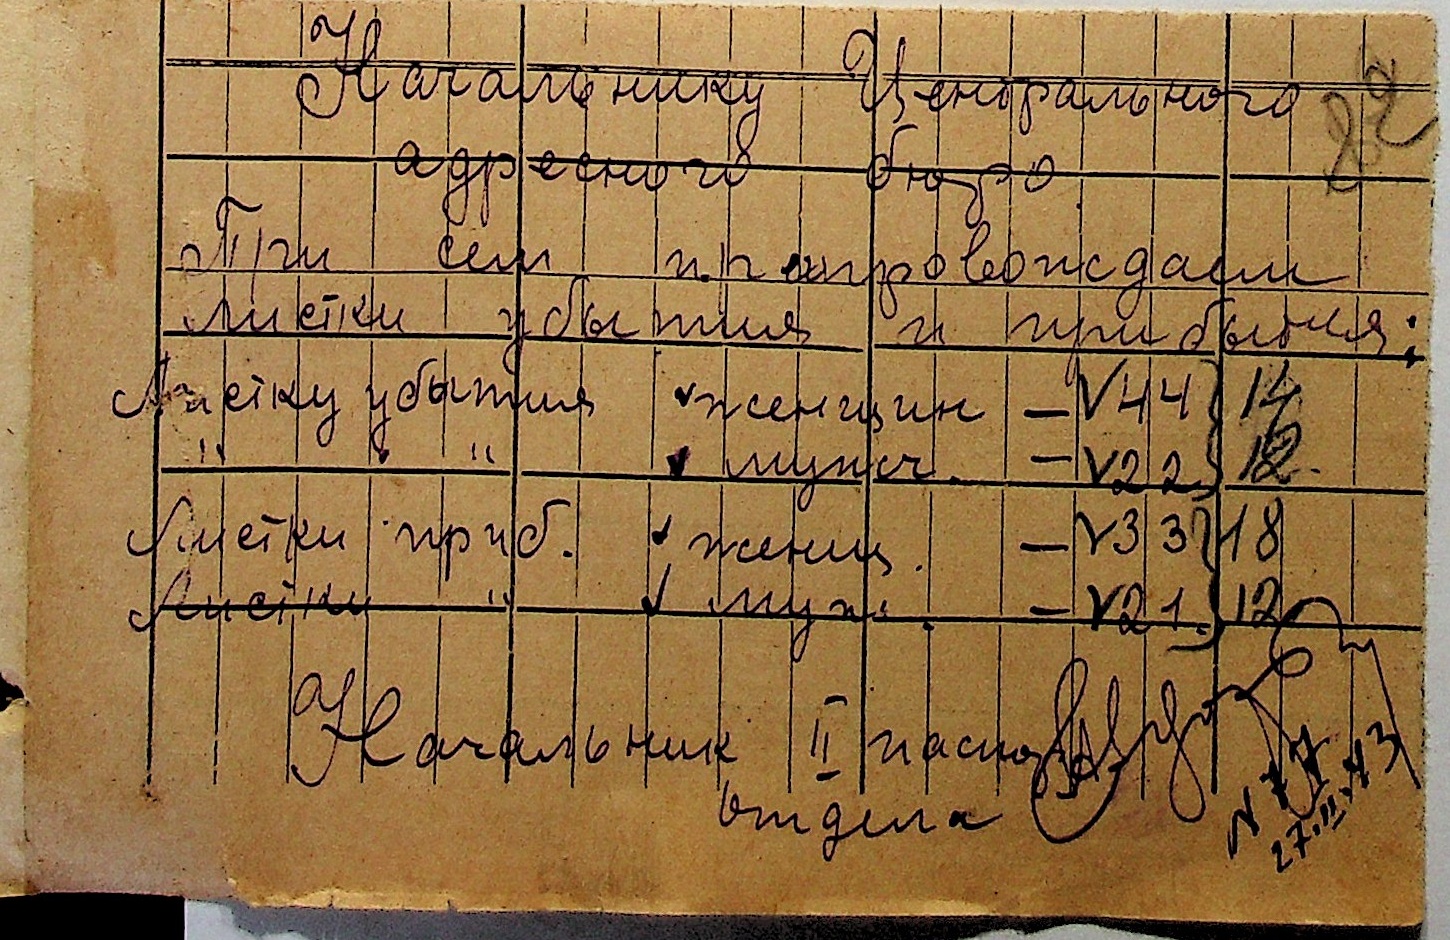 82
Начальнику Центрального
адресного бюро
При сем препровождаем
листки убытия и прибытия:
Листку убытия ✓ женщин – √44 } 14
" " ✓ мужч. – √22 } 12.
Листки приб. ✓ женщ. – √33 } 18
Листки " ✓ муж. – √21. } 12
Начальник II паспорт
отдела
27.II.43